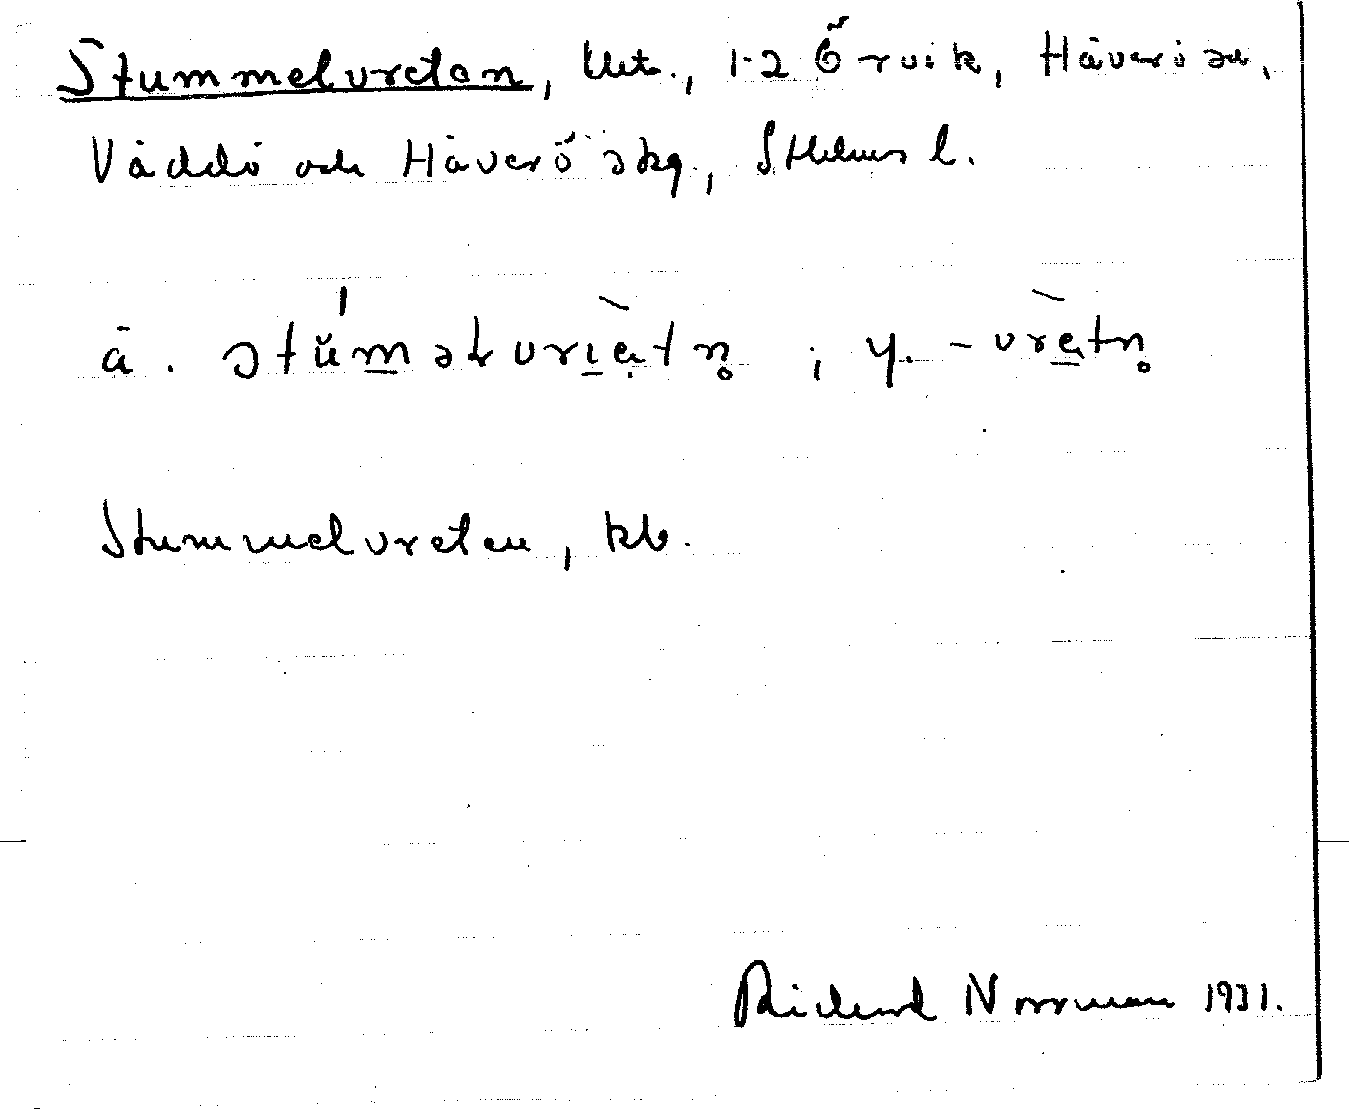 Stummelvreten, lht., 1-2 Örvik, Häverö sn,
Väddö och Häverö skg, Sthlms l.
ä. stŭməlvriètn̥ ; y. -vrètn̥
Stummelvreten, kb.
Richard Norrman 1931.